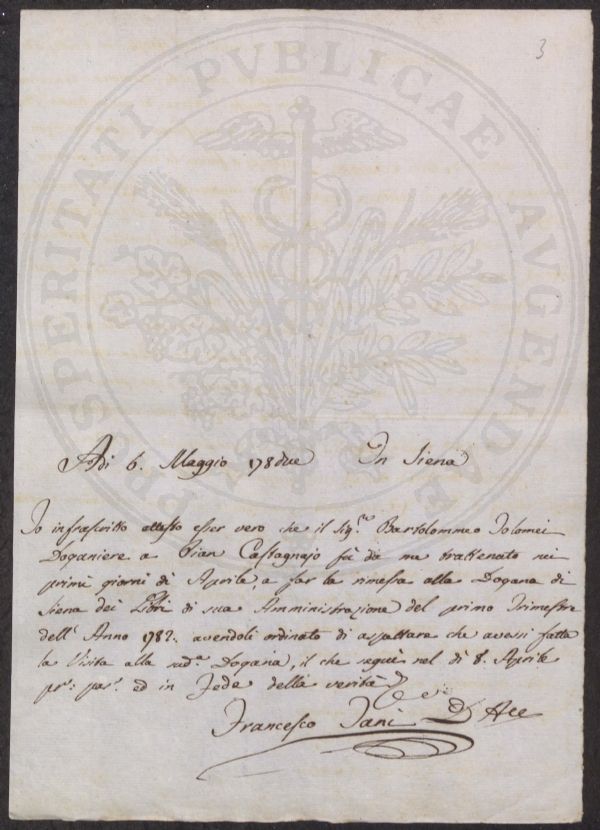 3
PROSPERITATI PVBLICAE AVGENDAE
Adi 6. Maggio 178due In Siena
Io infrascritto attesto esser vero che il Sig.re Bartolommeo Tolomei
Doganiere a Pian Castagnajo fù da me trattenuto nei
primi giorni di Aprile, a far la rimessa alla Dogana di
Siena dei Libri di sua Amministrazione del primo Trimestre
dell' Anno 1782. avendoli ordinato di aspettare che avessi fatta
la Visita alla sud.a Dogana, il che seguì nel dì 8. Aprile
pr.: pas.: ed in Fede della verità
Francesco